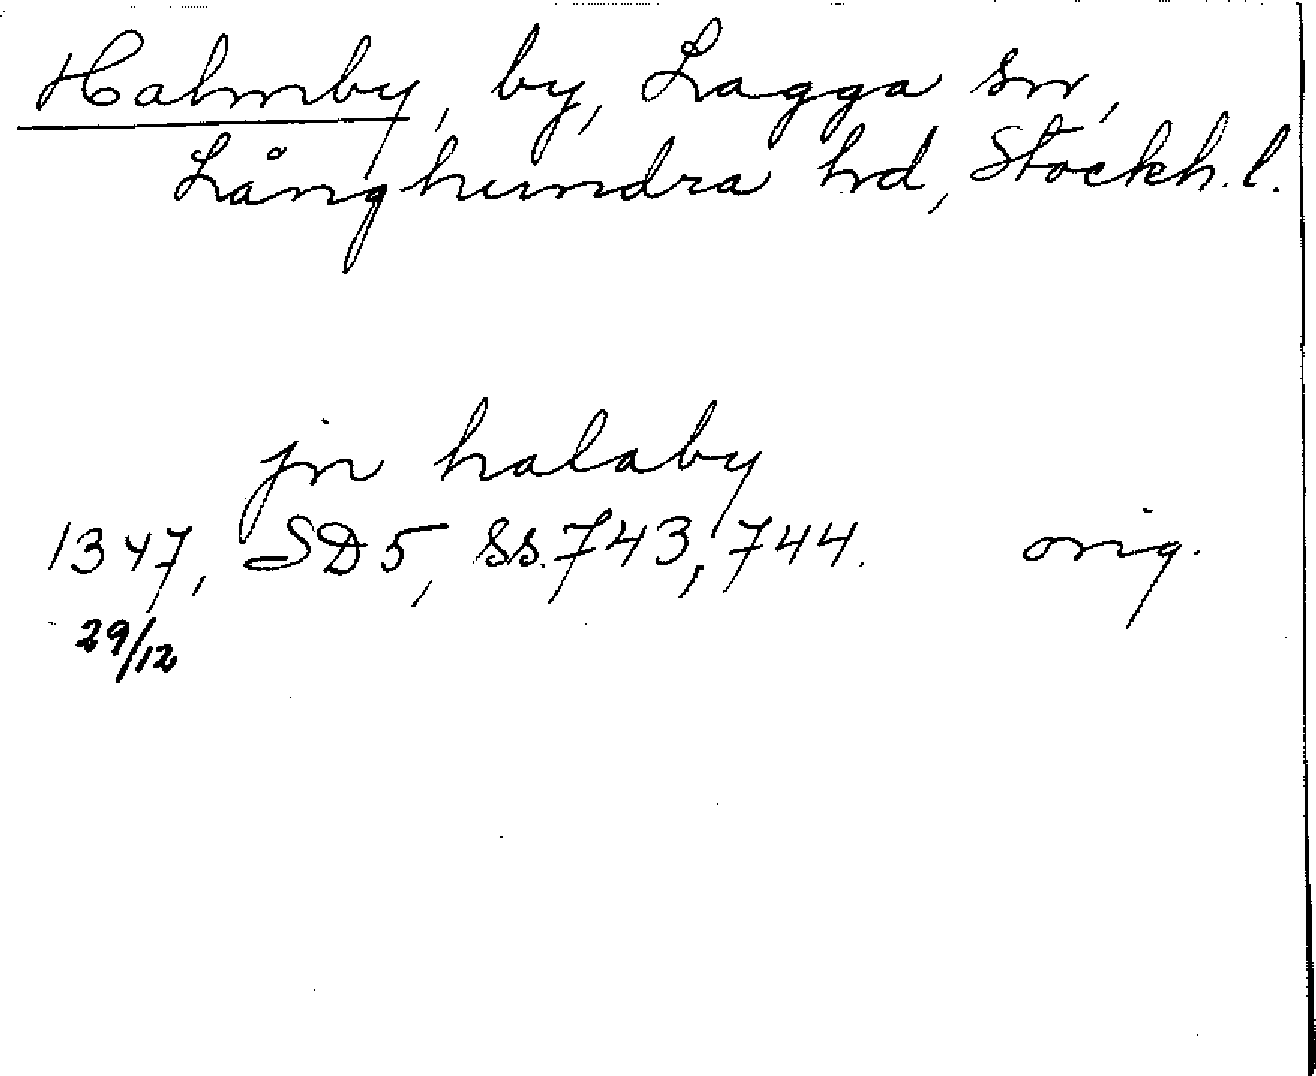 Halmby, by, Lagga sn,
Långhundra hd, Stockh. l.
jn halaby
1347, SD 5, ss. 743, 744. orig.
29/12